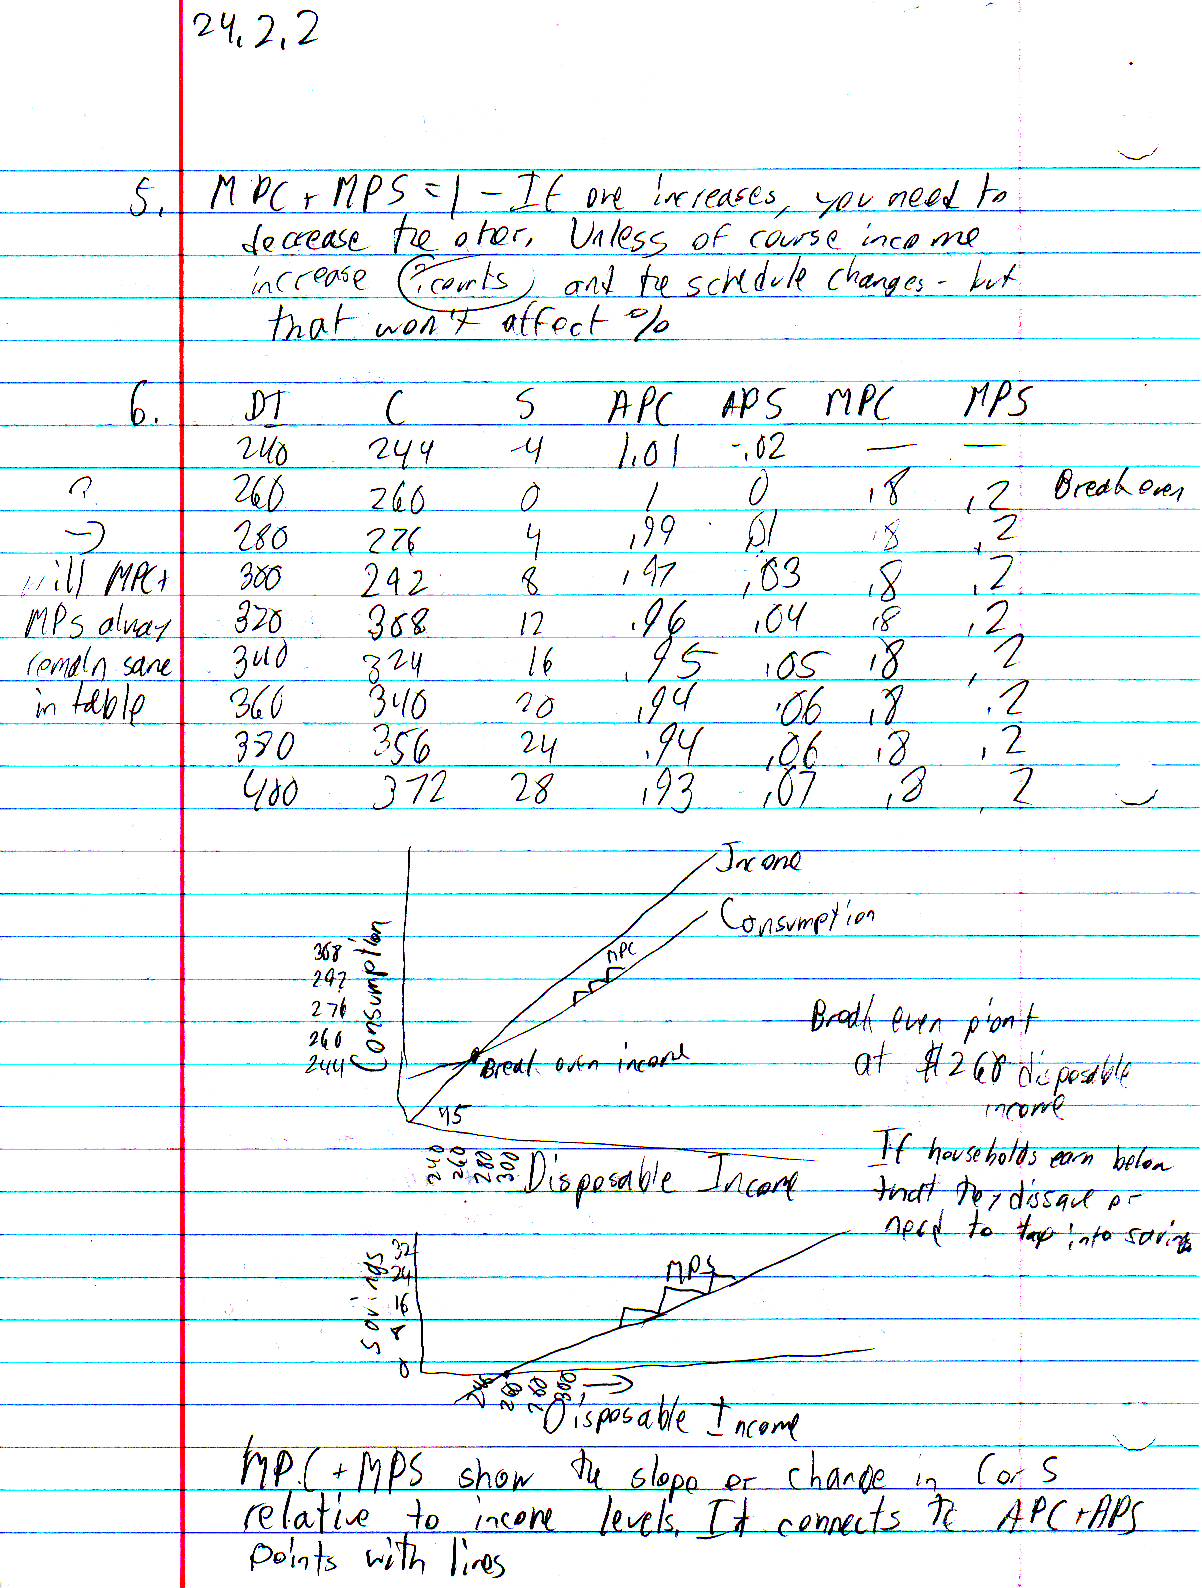 24.2.2
5. MPC + MPS = 1 - If one increases, you need to
decrease the other. Unless of course income
increase ? counts and the schedule changes - but
that won't affect %
6. DI C S APC APS MPC MPS
240 244 -4 1.01 -.02 — —
? 260 260 0 1 0 .8 .2 Break even
→ 280 276 4 .99 .01 .8 .2
will MPC + 300 292 8 .97 .03 .8 .2
MPS alway 320 308 12 .96 .04 .8 .2
remain same 340 324 16 .95 .05 .8 .2
in table 360 340 20 .94 .06 .8 .2
380 356 24 .94 .06 .8 .2
400 372 28 .93 .07 .8 .2
Income
Consumption
MPC
Consumption
308
292
276
260
244
Break even income
45
240 260 280 300
Disposable Income
Break even piont
at $260 disposable
income
If households earn below
that they dissave or
need to tap into savings
Savings
32
24
16
0
MPS
240 260 280 300 →
Disposable Income
MPC + MPS show the slope or change in C or S
relative to income levels. It connects the APC + APS
points with lines